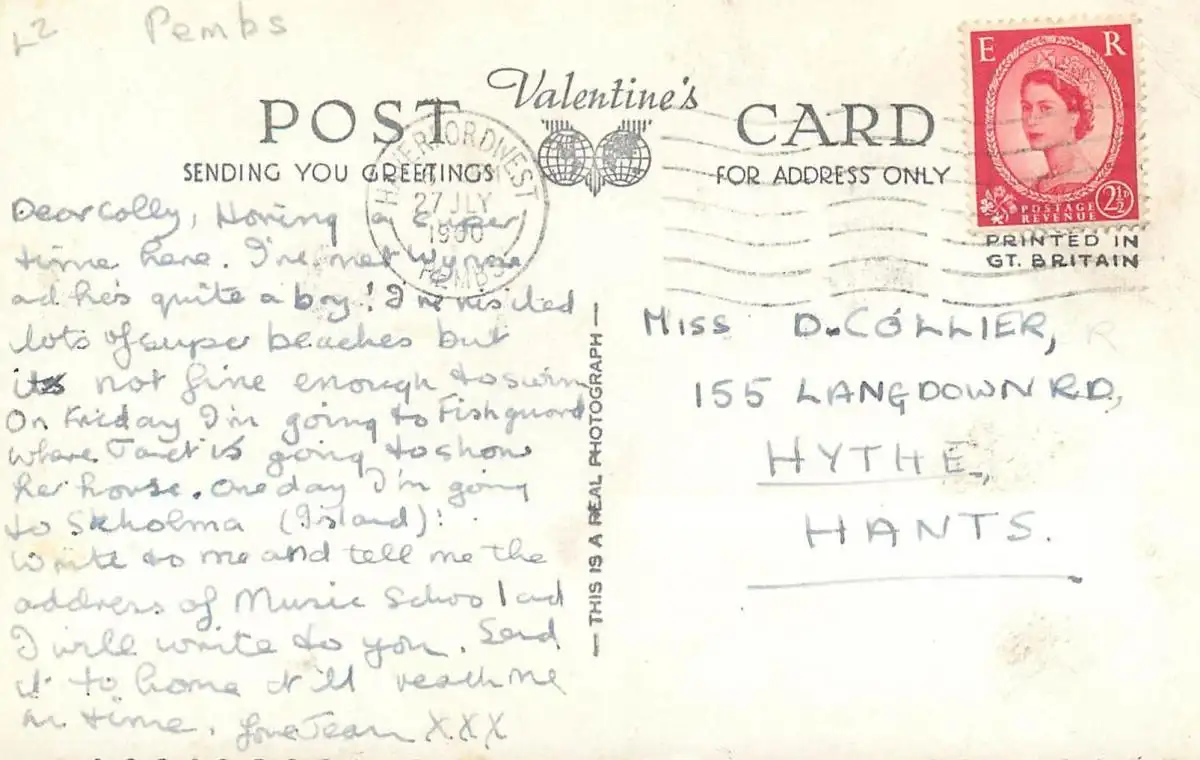 £2 Pembs
Valentine's
POST CARD
SENDING YOU GREETINGS
FOR ADDRESS ONLY
E R
POSTAGE
REVENUE
2½
PRINTED IN
GT. BRITAIN
HAVERFORDWEST
27 JLY
PEMBS
Dear Colly, Having a super
time here. I've met
ad he's quite a boy! I've visited
lots of super beaches but
its not fine enough to swim
On Friday I'm going to Fishguard
where Janet is going to show
her house. One day I'm going
to Skholma (Island)!
Write to me and tell me the
address of Music School and
I will write to you. Send
it to home it'll reach me
in time. Love Jean XXX
— THIS IS A REAL PHOTOGRAPH —
MISS D. COLLIER,
155 LANGDOWN RD,
HYTHE,
HANTS.